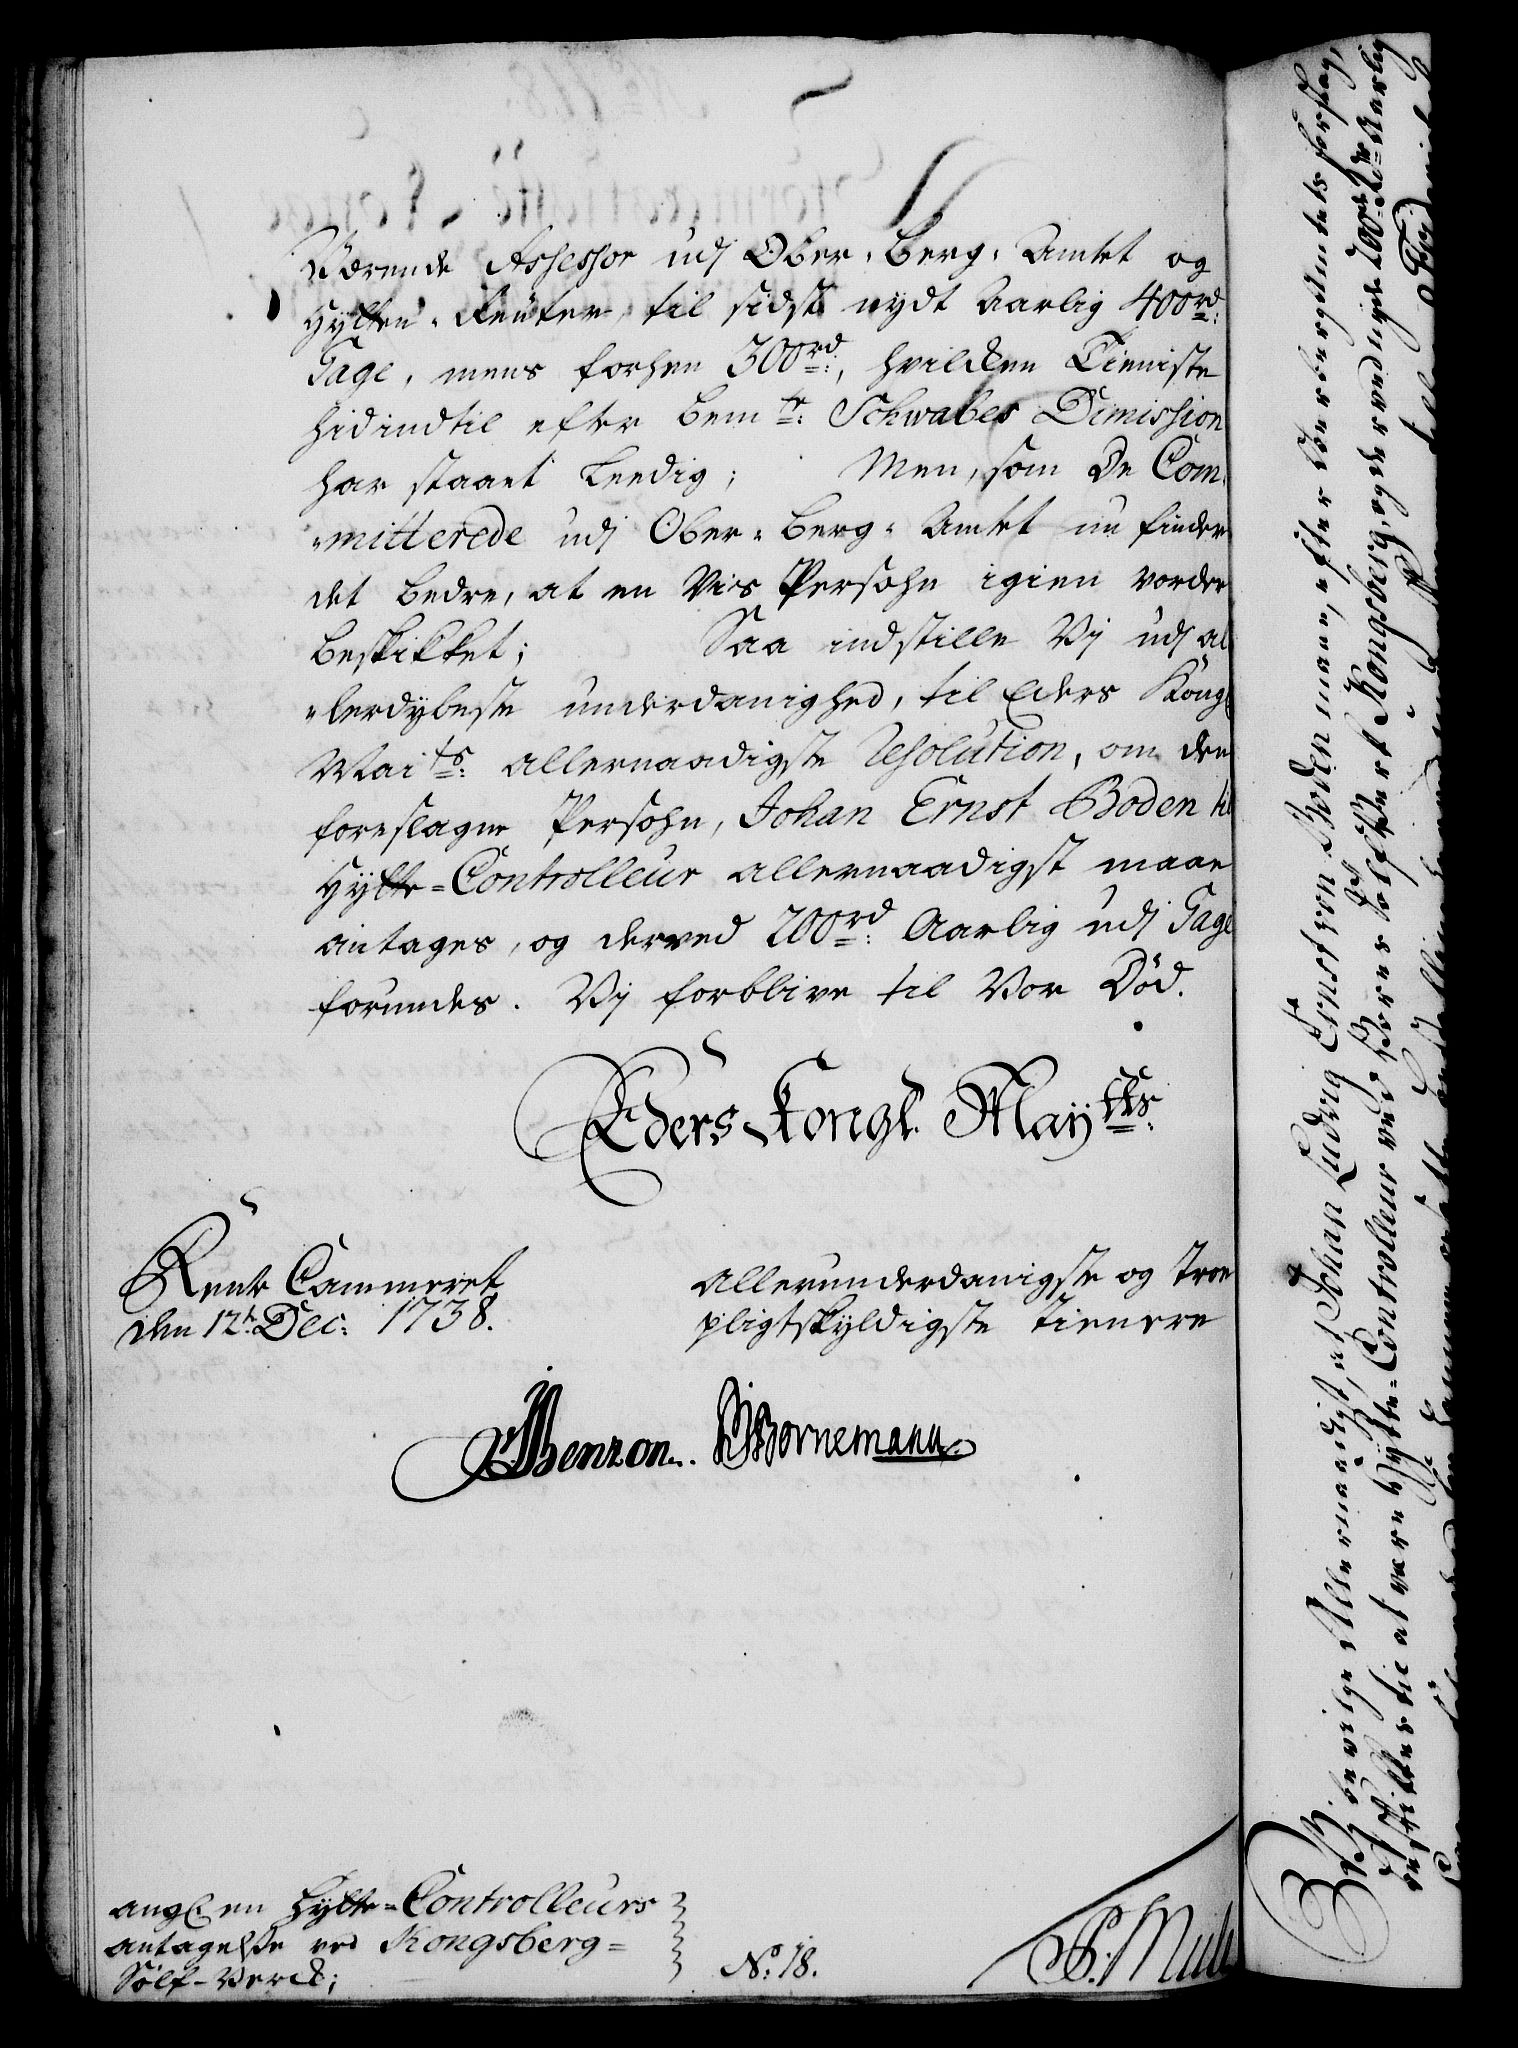 Værende Assessor udj Ober-Berg-Amtet og
Hytten-Reuter til sidst nydt Aarlig 400rd:
Gage, mens forhen 300rd:, hvilcken Tieniste
hidindtil efter bemte: Schwabes Dimission
har staaet Leedig; Men, som De Com-
-mitterede udj Ober-Berg-Amtet nu finder
det bedre, at en Vis Persohn igien vorder
beskikket; Saa indstille Vj udj al
-lerdybeste underdanighed, til Eders Kongl
Maits: allernaadigste Resolution, om den
foreslagne Persohn, Johan Ernst Boden til
Hytte-Controlleur allernaadigst maae
antages, og derved 200rd: Aarlig udj Gage
forundes. Vj forblive til Vor Död.
Eders Kongl. Maytts:
Rente Cammeret
den 12te Dec: 1738.
Allerunderdanigste og Troe
pligtskyldigste Tienere
Benzon. Bornemann
angl en Hytte-Controlleurs
antagelsse ved Kongsberg-
Sölf-Verck;
No: 18.
Vj bevilge Allernaadigst, at Johan Ludvig Ernst von Boden maae, efter Ober-bergAmtets forslag,
bestilles til at være Hytte-Controlleur ved Vores Sölf-Verk Kongsberg, og derved nyde 200 Rdr Aarlig